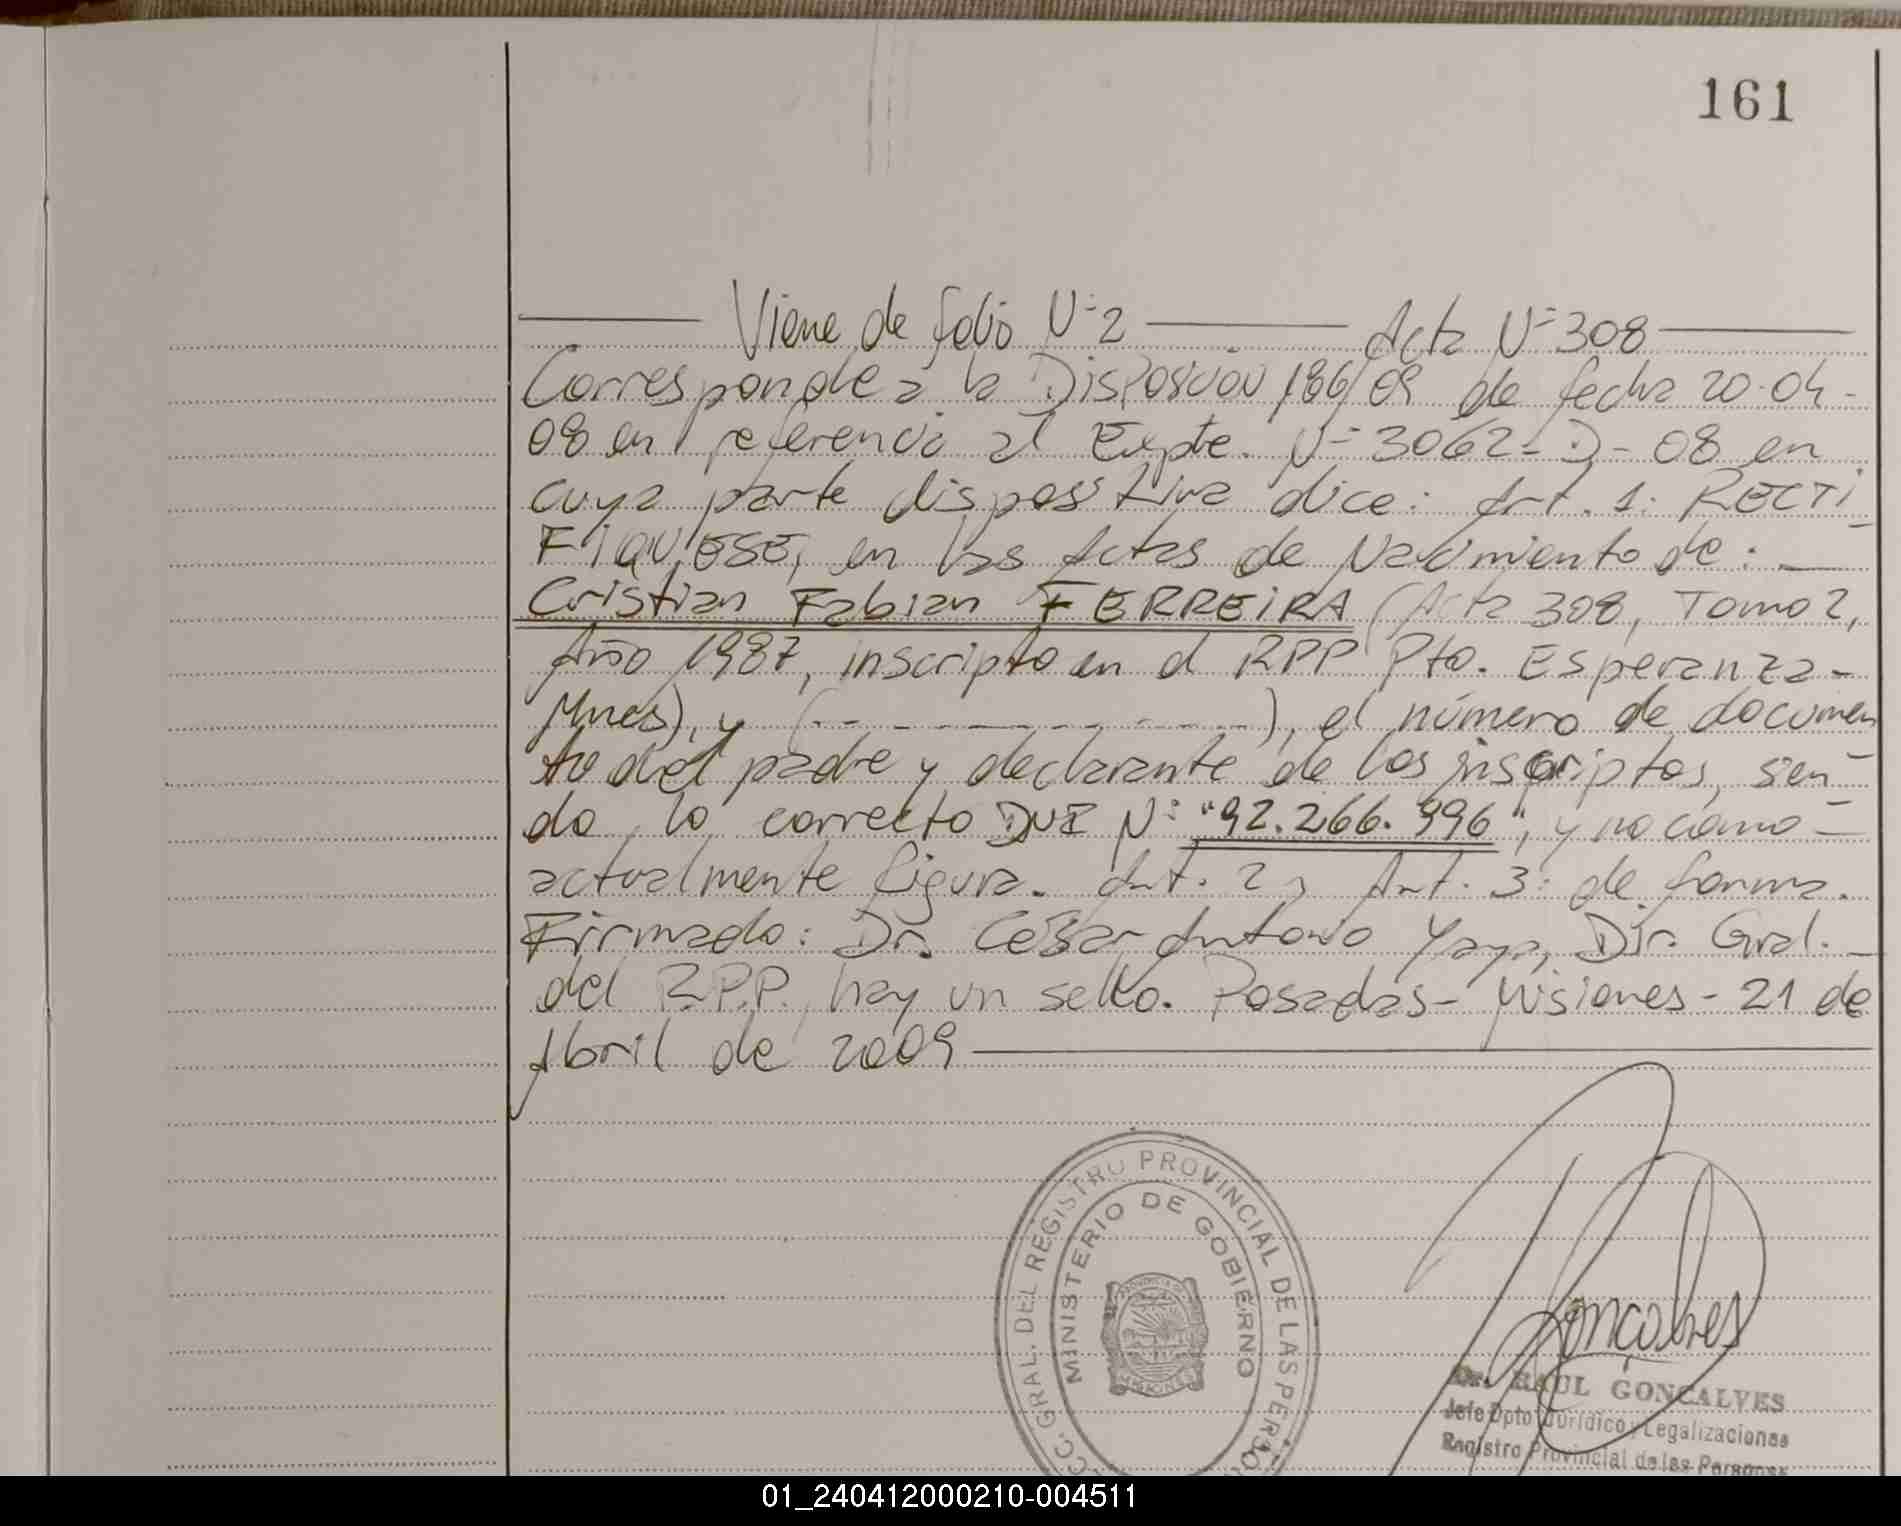 161
Viene de folio Nº 2 Acta Nº 308
Corresponde a la Disposición 186/09 de fecha 20-04-
08 en referencia al Expte. Nº 3062-D-08 en
cuya parte dispositiva dice: Art. 1: RECTI-
FIQUESE, en las Actas de Nacimiento de:
Cristian Fabian FERREIRA (Acta 308, Tomo 2,
Año 1987, inscripto en el RPP Pto. Esperanza-
Mnes), y (- - - - - - - - - - -), el número de documen
to del padre y declarante de los inscriptos, sien-
do lo correcto DNI Nº "92.266.996", y no como
actualmente figura. Art. 2 y Art. 3: de forma.
Firmado: Dr. César Antonio Yaya, Dir. Gral.
del R.P.P., hay un sello. Posadas- Misiones- 21 de
Abril de 2009
CC. GRAL. DEL REGISTRO PROVINCIAL DE LAS PERSO
MINISTERIO DE GOBIERNO
PROVINCIA DE
MISIONES
Goncalves
Dr. RAUL GONCALVES
Jefe Dpto. Jurídico y Legalizaciones
Registro Provincial de las Personas
01_240412000210-004511